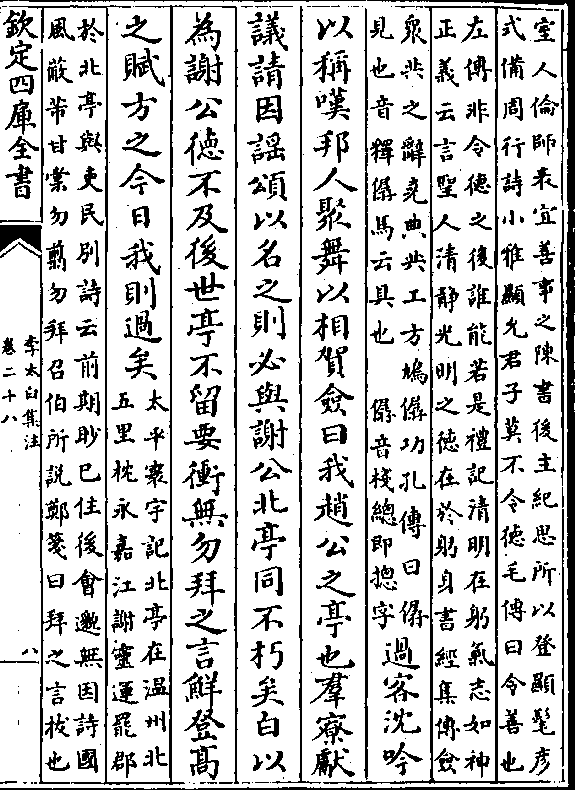 室人倫師表宜善事之陳書後主紀思所以登顯髦彦
式備周行詩小雅顯允君子莫不令德毛傳曰令善也
左傳非令德之後誰能若是禮記清明在躬氣志如神
正義云言聖人清静光明之德在於躬身書經集傳僉
衆共之辭堯典共工方鳩僝功孔傳曰僝
見也音釋僝馬云具也　僝音棧總即摠字
過客沈吟
以稱嘆邦人聚舞以相賀僉曰我趙公之亭也羣寮獻
議請因謡頌以名之則必與謝公北亭同不朽矣白以
為謝公德不及後世亭不留要衝無勿拜之言鮮登高
之賦方之今日我則過矣
太平寰宇記北亭在温州北
五里枕永嘉江謝靈運罷郡
於北亭與吏民别詩云前期眇已往後會邈無因詩國
風蔽芾甘棠勿翦勿拜召伯所説鄭箋曰拜之言拔也
欽定四庫全書
李太白集注
卷二十八
八